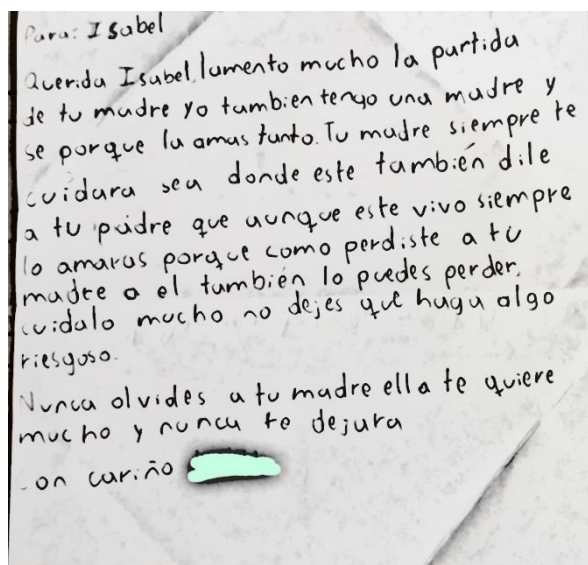 Para: Isabel
Querida Isabel, lamento mucho la partida
de tu madre yo tambien tengo una madre y
se porque la amas tanto. Tu madre siempre te
cuidara sea donde este también dile
a tu padre que aunque este vivo siempre
lo amaras porque como perdiste a tu
madre a el también lo puedes perder,
cuidalo mucho no dejes que haga algo
riesgoso.
Nunca olvides a tu madre ella te quiere
mucho y nunca te dejara
con cariño